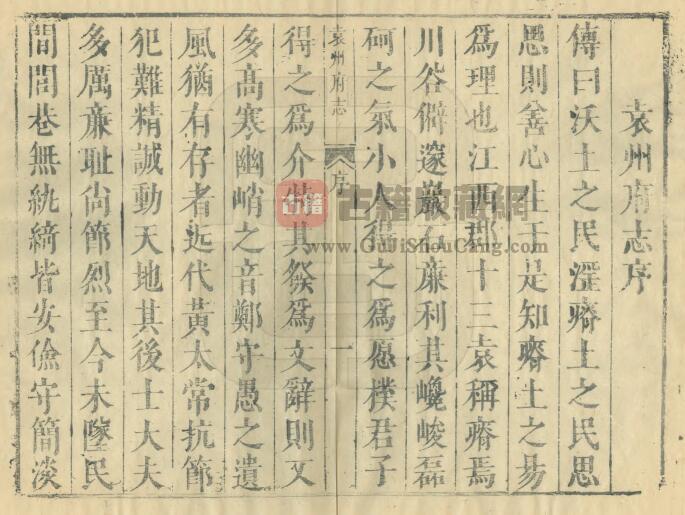 袁州府志序
傳曰沃土之民滛瘠土之民思
思則善心生于是知瘠土之昜
爲理也江西郡十三袁稱瘠焉
川谷僻邃巖石亷利其巉峻磊
砢之氣小人得之爲愿樸君子
袁州府志
序
一
得之爲介特其發爲文辭則又
多高寒幽峭之音鄭守愚之遺
風猶有存者近代黃太常抗節
犯難精誠動天地其後士大夫
多厲亷耻尚節烈至今未墜民
間閭巷無紈綺皆安儉守簡淡
古籍
古籍收藏網
www.GuJiShouCang.com